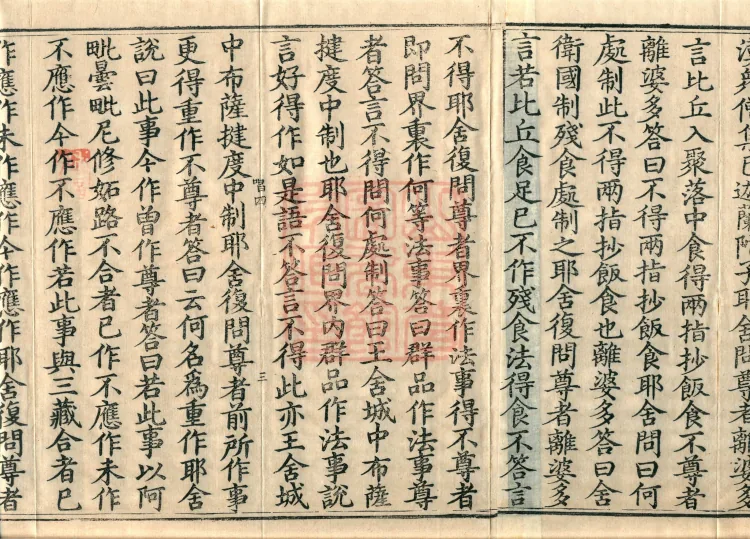 耶舍問尊者離婆多
言比丘入聚落中食得兩指抄飯食不尊者
離婆多答曰不得兩指抄飯食耶舍問曰何
處制此不得兩指抄飯食也離婆多答曰舍
衛國制殘食處制之耶舍復問尊者離婆多
言若比丘食足已不作殘食法得食不答言
不得耶舍復問尊者界裏作法事得不尊者
即問界裏作何等法事答曰群品作法事尊
者答言不得問何處制答曰王舍城中布薩
揵度中制也耶舍復問界內群品作法事說
言好得作如是語不答言不得此亦王舍城
唱四 三
中布薩揵度中制耶舍復問尊者前所作事
更得重作不尊者答曰云何名為重作耶舍
說曰此事今作曾作尊者答曰若此事以阿
毗曇毗尼修妬路不合者已作不應作未作
不應作今作不應作若此事與三藏合者已
作應作未作應作今作應作耶舍復問尊者